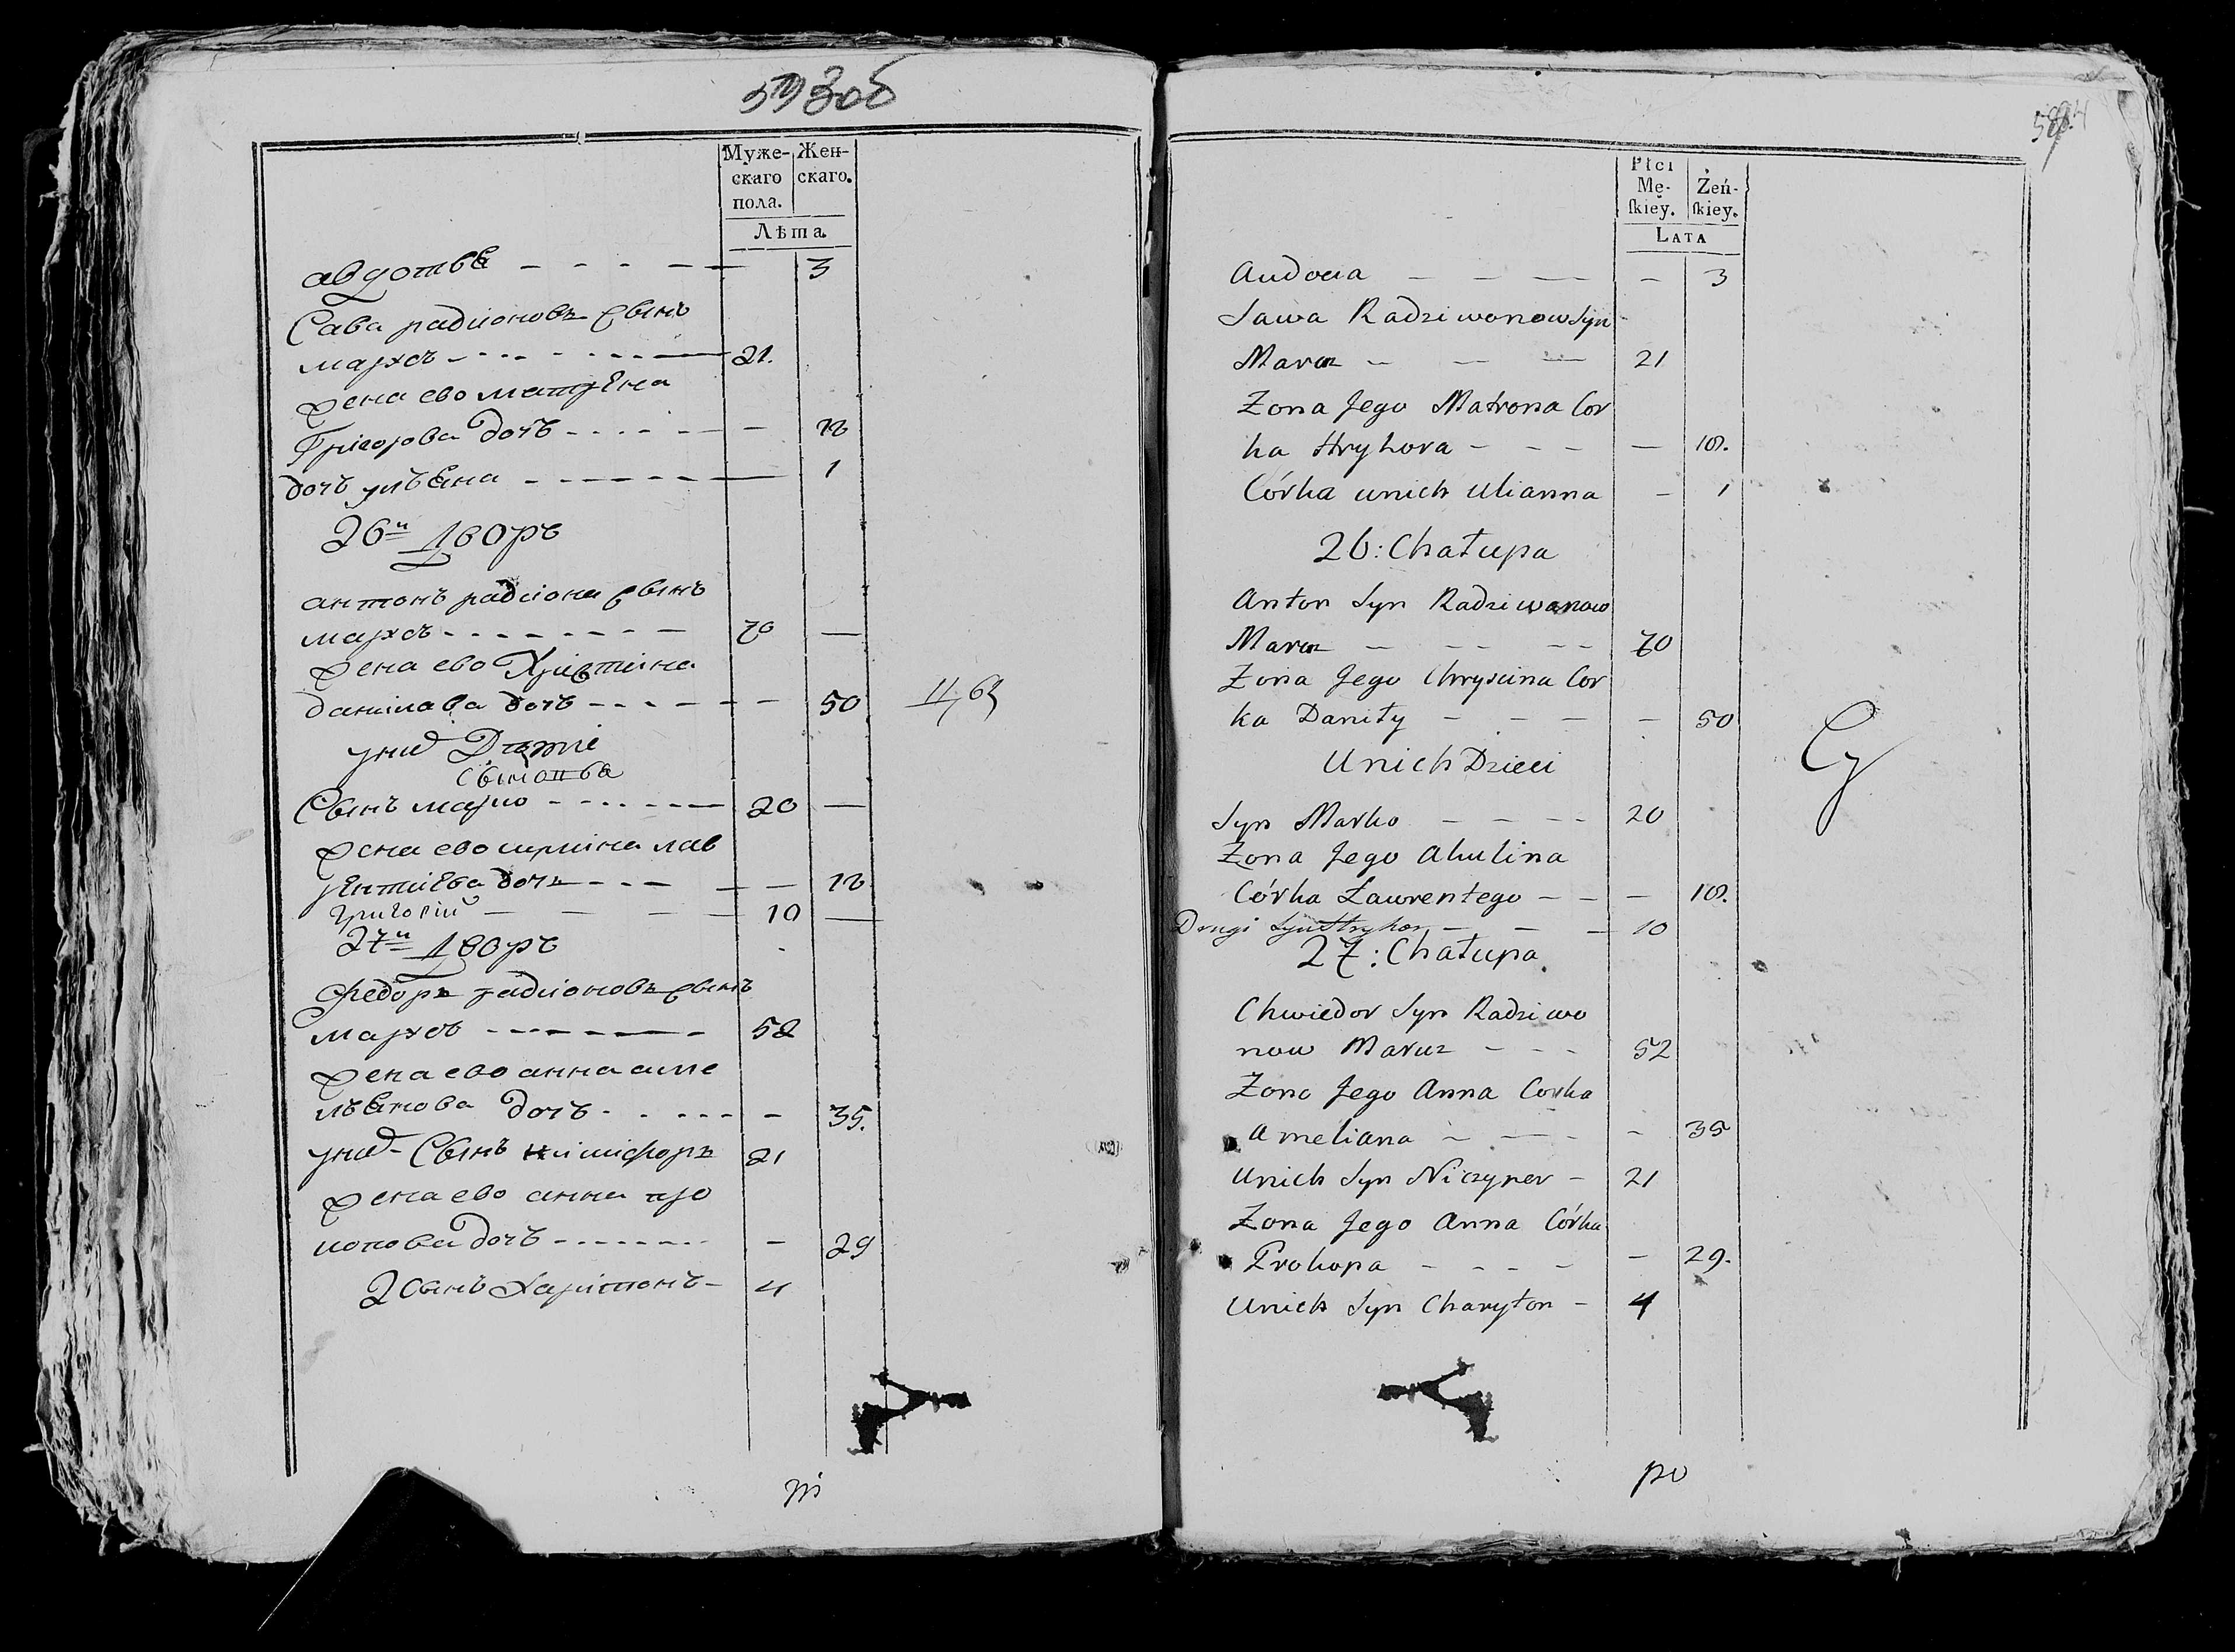 593об
Муже-
скаго
пола.
Жен-
скаго.
Лѣта.
авдотья - - - - - 3
Сава радионовъ сынъ
марxъ - - - - - 21.
жена ево матрена
Григорова дочь - - - - -
дочь ульяна - - - - - 1
26й дворъ
антонъ радиона сынъ
марxъ - - - - - 70 —
жена ево Христина
данилава дочь - - - - - 50
униⷯ Дети
Сынъ марко - - - - - 20 —
жена ево лав
рентиева дочь - - - - -
григорий — — — 10 —
27й дворъ
Федоръ радионовъ сынъ
марxъ - - - - - 52
жена ево анна аме
льянова дочь - - - - - 35.
униⷯ Сынъ никифоръ 21
жена ево анна про
копова дочь - - - - - 29
2 Сынъ Харитонъ - 4
Płci
Mę-
ſkiey.
Żeń-
ſkiey.
Lata
Audocia — — — — — 3
Sawa Radziwonow Syn
Maruz — — — 21
Zona Jego Matrona Cor
ka Hryhora - - - — 18.
Córka unich Ulianna - 1
26: Chałupa
Anton Syn Radziwonow
Maruz — - - - - 70
Zona Jego Chryscina Cor
ka Daniły - - - - 50
Unich Dzieci
Syn Marko - - - - 20
Zona Jego Akulina
Córka Ławrentego - - - 18.
Drugi Syn Hryhor - - - 10
27: Chałupa
Chwiedor Syn Radziwo
now Maruz - - - 52
Zona Jego Anna Corka
Ameliana - - - - 35
Unich Syn Niczyper - 21
Zona Jego Anna Córka
Prokopa - - - - - 29.
Unich Syn Charyton - 4
po